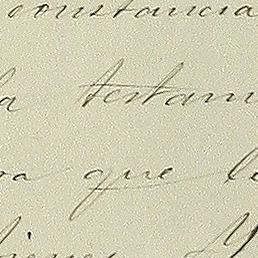 constancia
la testam
ra que l